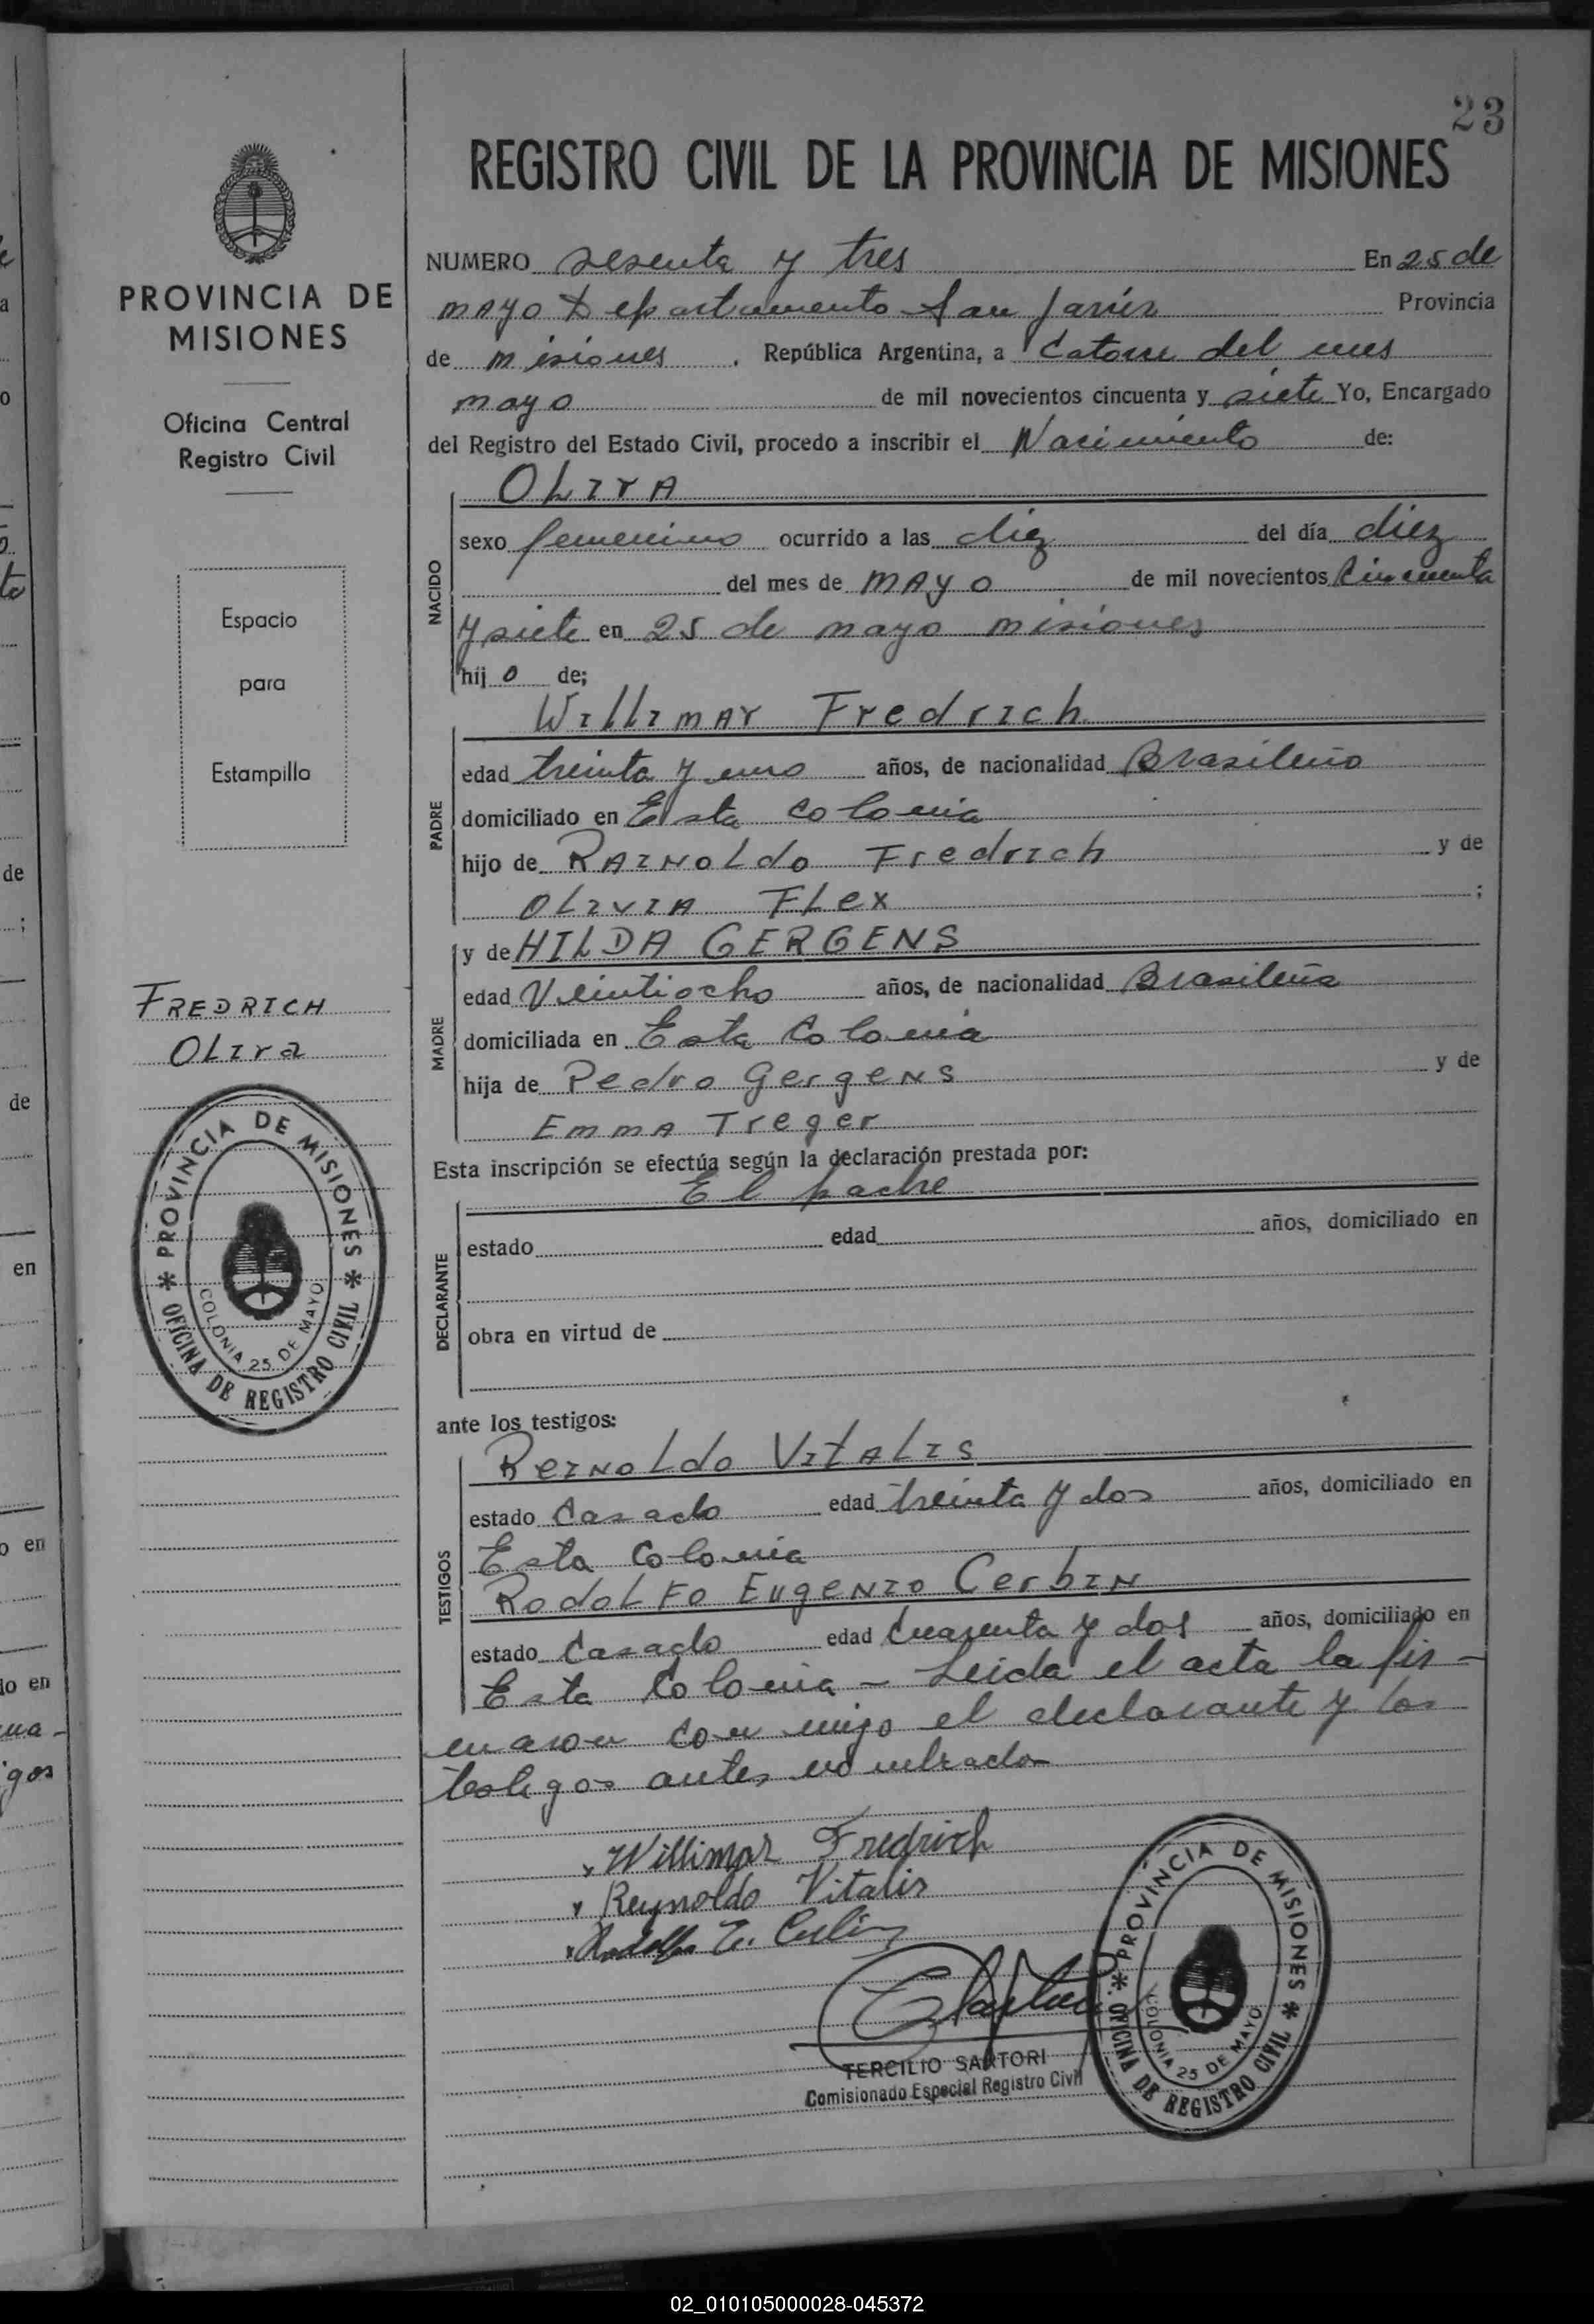 23
REGISTRO CIVIL DE LA PROVINCIA DE MISIONES
PROVINCIA DE
MISIONES
Oficina Central
Registro Civil
Espacio
para
Estampilla
FREDRICH
OLIVA
PROVINCIA DE MISIONES
OFICINA DE REGISTRO CIVIL
COLONIA 25 DE MAYO
NUMERO sesenta y tres En 25 de
mayo Departamento San Javier Provincia
de misiones, República Argentina, a catorce del mes
mayo de mil novecientos cincuenta y siete Yo, Encargado
del Registro del Estado Civil, procedo a inscribir el Nacimiento de:
NACIDO
OLIVA
sexo femenino ocurrido a las diez del día diez
del mes de MAYO de mil novecientos cincuenta
y siete en 25 de mayo misiones
hij o de;
PADRE
Willimar Fredrich
edad treinta y uno años, de nacionalidad Brasileño
domiciliado en Esta colonia
hijo de RAINOLdo Fredrich y de
OLIVIA FLex ;
MADRE
y de HILDA GERGENS
edad Veintiocho años, de nacionalidad Brasileña
domiciliada en Esta Colonia
hija de Pedro GergeNS y de
EmmA Treger
Esta inscripción se efectúa según la declaración prestada por:
DECLARANTE
El padre
estado edad años, domiciliado en
obra en virtud de
ante los testigos:
TESTIGOS
ReiNoLdo VitALis
estado Casado edad treinta y dos años, domiciliado en
Esta Colonia
RodoLFo EugeNio CerbiN
estado Casado edad Cuarenta y dos años, domiciliado en
Esta Colonia - Leida el acta la fir-
maron con migo el declarante y los
testigos antes nombrados
Willimar Fredrich
Reynoldo Vitalis
Rodolfo E. Cerbin
TERCILIO SARTORI
Comisionado Especial Registro Civil
PROVINCIA DE MISIONES
OFICINA DE REGISTRO CIVIL
COLONIA 25 DE MAYO
02_010105000028-045372